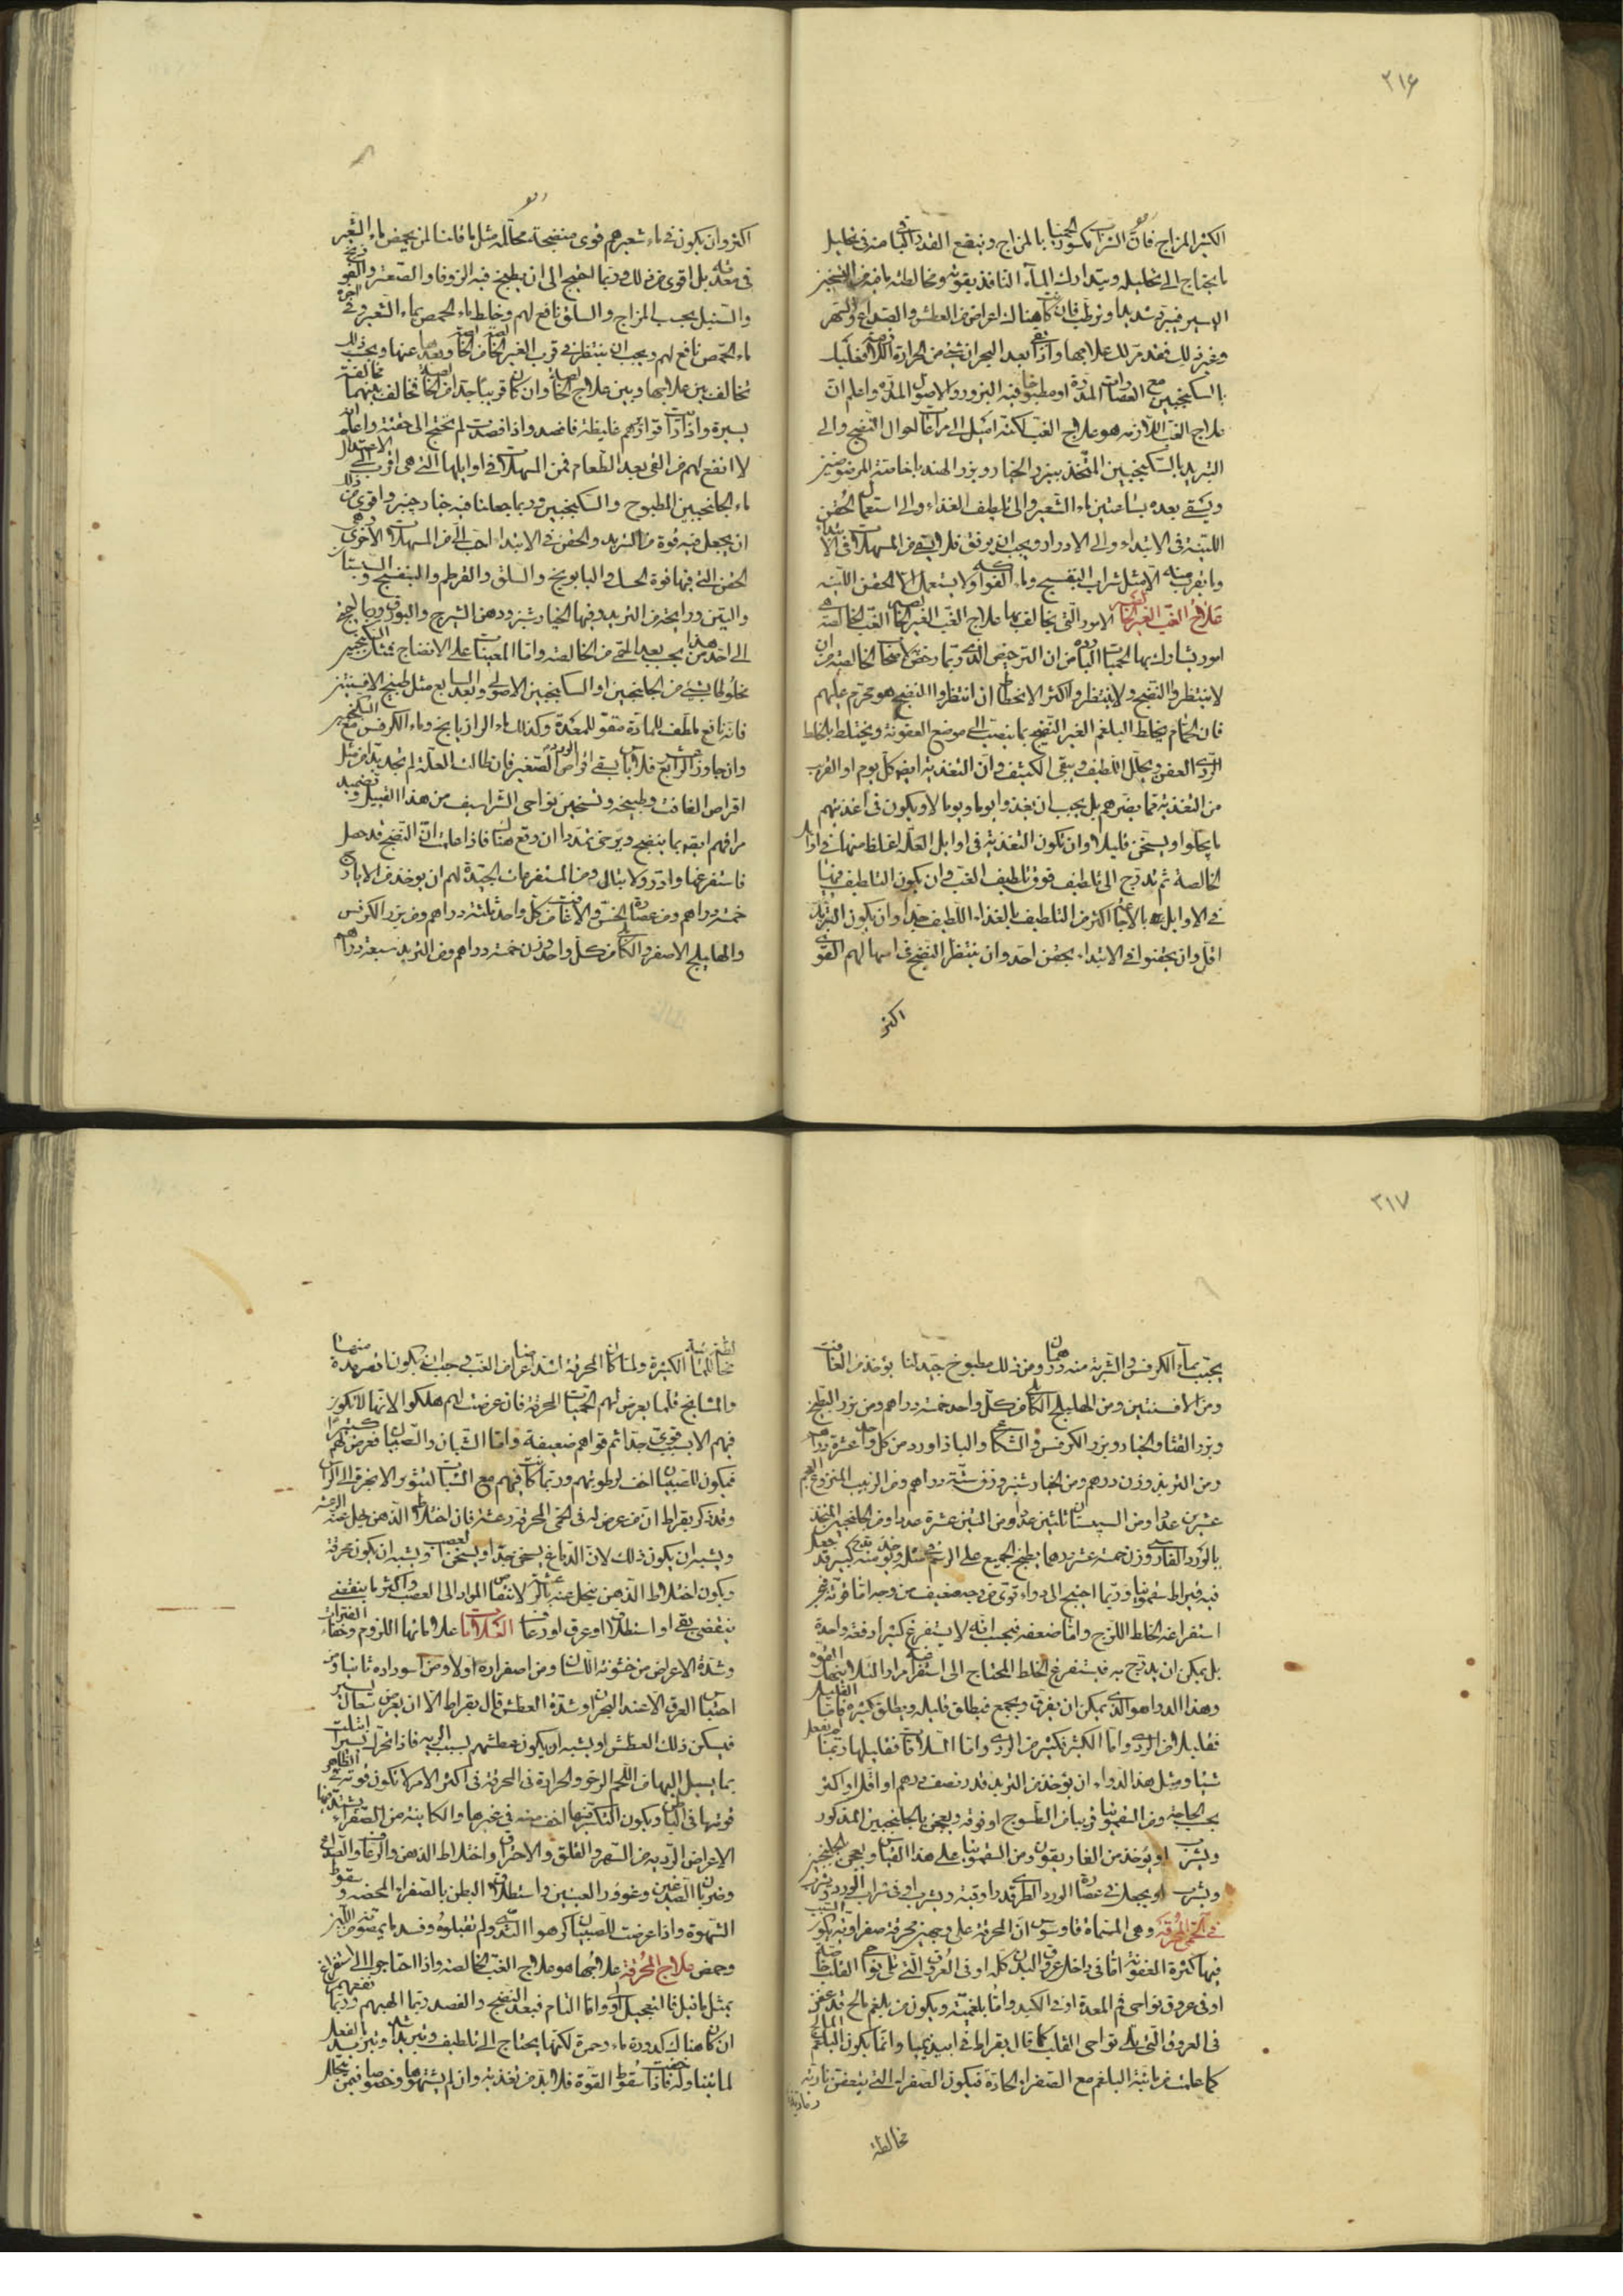 ٣١۶
الكثير المزاج فان الشراب مكسور الحميا بالمزاج وينفع القدر الباقي منه في تحليل
ما يحتاج الى تحليله ويتدارك الماء النافذ بقوته ومخالطته ما فيه من التسخين
اليسير فيبرد شديدا ويرطب فان كانت هناك اعراض من العطش والصداع والسهر
وغير ذلك فقد مر لك علاجها واذا بقي بعد البحران شيء من الحرارة اللازمة فعليك
بالسكنجبين مع العصارات المدرة او مطبوخا فيه البزور والاصول المدرة واعلم ان
علاج الغب اللازمة هو علاج الغب لكنه اميل الى مراعاة احوال النضج والى
التبريد بالسكنجبين المتخذ ببزر الخيار وبزر الهندباء خاصة المرضوضين
ويسقى بعده بساعتين ماء الشعير والى تلطيف الغذاء والى استعمال الحقن
اللينة في الابتداء والى الادرار ويجب ان يرفق فلا يسقى من المسهلات في الابتداء
وما يقرب منه الا مثل شراب البنفسج وماء الفواكه ولا يستعمل الا الحقن اللينة
علاج الغب الغير الخالصة الامور التي يخالف بها علاج الغب الغير الخالصة الغب الخالصة هي
امور يشاركها الحميات الباردة من ان الترخيص الذي ربما رخصناه لاصحاب الخالصة من ان
لا ينتظروا النضج ولا ينتظروا اكثر الانحطاط ان انتظروا النضج هو محرم عليهم
فان الحمام يخلط البلغم الغير النضيج بما ينصب الى موضع العفونة ويختلط بالخلط
الردي العفن ويحلل اللطيف ويبقي الكثيف وان التغذية ايضا كل يوم او القرب
من التغذية مما يضرهم بل يجب ان يغذوا يوما ويوما لا ويكون في اغذيتهم
ما يجلو او يسخن قليلا وان تكون التغذية في اوايل العلة اغلظ منها في اوايل
الخالصة ثم يتدرج الى تلطيف فوق تلطيف الغب وان يكون التلطيف فيها
في الاوايل بالاجاعة اكثر من التلطيف بالغذاء اللطيف جدا وان يكون التبريد
اقل وان يحقنوا في الابتداء بحقن احد وان ينتظر النضج في اسهالهم القوي
اكثر
اكثر وان يكون في ماء شعيرهم قوى منضجة محللة مثل ما قلنا لمن يحمض ماء الشعير
في معدته بل اقوى من ذلك وربما احتيج الى ان يطبخ فيه الزوفا والصعتر والفودنج
والسنبل بحسب المزاج والسلق نافع لهم وخلط ماء الحمص بماء الشعير وفي اخره
ماء الحمص نافع لهم ويجب ان ينتظر في قرب الغير الخالصة من الخالصة وبعدها عنها ويجب ذلك
تخالف بين علاجها وبين علاج الخالصة وان كان قريبا جدا من الخالصة خالف بينهما مخالفة
يسيرة واذا رايت قواريرهم غليظة فافصد واذا فصدت لم تحتج الى حقنة واعلم انه
لا انفع لهم من القيء بعد الطعام فمن المسهلات في اوايلها التي هي اقرب الى الاعتدال
ماء الجلنجبين المطبوخ والسكنجبين وربما جعلنا فيه خيارشنبر واقوى من ذلك
ان يجعل فيه قوة من التربد والحقن في الابتداء احب الي من المسهلات الاخرى وهي
الحقن التي فيها قوة الحسك والبابونج والسلق والقرطم والبنفسج والسبستان
والتين ورايحة من التربد وفيها الخيارشنبر ودهن الشيرج والبورق وربما احتيج
الى احد من هذا بحسب بعد الحمى من الخالصة واما المعينات على الانضاج فمثل السكنجبين
مخلوطا بشيء من الجلنجبين او السكنجبين الاصولي وبعد السابع مثل طبيخ الافسنتين
فانه نافع ملطف للمادة مقو للمعدة وكذلك ماء الرازيانج وماء الكرفس مع السكنجبين
وان جاوزت الرابع فلا باس بسقي اقراص الورد الصغير فان طالت العلة لم تجد بدا من مثل
اقراص الغافث وطبيخه وتسخين نواحي الشراسيف من هذا القبيل وتضميد
مراقهم ايضا بما ينضج ويرخي تمددا ان وقع هناك فاذا علمت ان النضج قد حصل
فاستفرغها وادرر ولا تبال ومن المستفرغات الجيدة لهم ان يوخذ من الايارج
خمسة دراهم ومن عصارة الخس والغافث من كل واحد ثلثة دراهم ومن بزر الكرفس
والهليلج الاصفر والكابلي من كل واحد وزن خمسة دراهم ومن التربد سبعة دراهم
٣١٧
يحبب بماء الكرفس والشربة منه درهمان ومن ذلك مطبوخ جيد لنا يوخذ من الغافث
ومن الافسنتين ومن الهليلج الكابلي من كل واحد خمسة دراهم ومن بزر البطيخ
وبزر القثا والخيار وبزر الكرفس والشكاعى والباذاورد من كل واحد عشرة دراهم
ومن التربد وزن درهم ومن الخيارشنبر وزن ستة دراهم ومن الزبيب المنزوع العجم
عشرين عددا ومن السبستان ثلثين عددا ومن التين عشرة عددا ومن الجلنجبين المتخذ
بالورد الفارسي وزن خمسة عشر درهما يطبخ الجميع على الرسم في مثله ويوخذ منه قدح كبير قد جعل
فيه قيراط سقمونيا وربما احتيج الى دواء قوي من وجه ضعيف من وجه اما قوته فبحسب
استفراغه الخلط اللزج واما ضعفه فبحسب انه لا يستفرغ كثيرا دفعة واحدة
بل يمكن ان يتدرج به فيستفرغ الخلط المحتاج الى استفراغه مرارا لئلا ينهك القوة
وهذا الدواء هو الذي يمكن ان يفرق ويجمع فيطلق قليله ويطلق كثيره فاما القليل
فقليلا من الردي واما الكثير فكثير من الردي واما السلاقات فقليلها ربما لم يفعل
شيئا ومثل هذا الدواء ان يوخذ من التربد قدر نصف درهم او اقل او اكثر
بحسب الحاجة ومن السقمونيا قريبا من الطسوج او فوقه ويعجن بالجلنجبين المذكور
ويشرب او يوخذ من الغاريقون ومن السقمونيا على هذا القياس ويعجن بالجلنجبين
ويشرب او يجعل في عصارة الورد الطري قدر اوقية ويشرب او في شراب الورد
في الحمى المحرقة وهي المسماة قاوسوس ان المحرقة على وجهين محرقة صفراوية يكون السبب
فيها كثرة العفونة اما في داخل عروق البدن كله او في العروق التي تلي نواحي القلب خاصة
او في عروق نواحي فم المعدة او في الكبد واما بلغمية ويكون من بلغم مالح قد عفن
في العروق التي تلي نواحي القلب كما قال بقراط في ابيذيميا وانما يكون البلغم المالح
كما علمت من مائية البلغم مع الصفراء الحادة فيكون الصفراء التي تتعفن نارية
مخالطة
مخالطة للمائية الكثيرة ولما كان المحرقة اشد اعراضا من الغب وجب ان يكون اقصر مدة منها
والمشايخ قلما يعرض لهم الحميات المحرقة فان عرضت لهم هلكوا لانها لا تكون
فيهم الا بسبب قوي جدا ثم قواهم ضعيفة واما الشبان والصبيان فيعرض لهم كثيرا
فيكون للصبيان اخف لرطوبتهم وربما كانت فيهم مع السبات لتثوير الابخرة الى الراس
وقد ذكر بقراط ان من عرض له في الحمى المحرقة رعشة فان اختلاط الذهن يحل عنه الرعشة
ويشبه ان يكون ذلك لان الدماغ يسخن جدا ويسخن العصب ويشبه ان يكون محرقة
ويكون اختلاط الذهن ينحل عنه بالرعشة لانتقاض المواد الى العصب واكثر ما ينقضي
ينقضي بقيء او استطلاق او عرق او رعاف العلامات علاماتها اللزوم وخفاء الفترات
وشدة الاعراض من خشونة اللسان ومن اصفراره اولا ومن اسوداده ثانيا ومن
احتباس العرق الا عند البحران وشدة العطش قال بقراط الا ان يعرض سعال يسير
فيسكن ذلك العطش او يشبه ان يكون عطشهم بسبب الرية فاذا تحرك يسيرا ابتلت
بما يسيل اليها من اللحم الرخو والحرارة في المحرقة في اكثر الامر لا تكون قوية في الظاهر
قوتها في الباطن ويكون النكس فيها اخف منه في غيرها والكاينة من الصفراء يشتد فيها
الاعراض الردية من السهر والقلق والاحتراق واختلاط الذهن والرعاف والصداع
وضربان الصدغين وغوور العينين واستطلاق البطن بالصفراء المحضة وسقوط
الشهوة واذا عرضت للصبيان كرهوا الثدي ولم يقبلوه وفسد ما يمصونه من اللبن
وحمض علاج المحرقة علاجها هو علاج الغب الخالصة واذا احتاجوا الى استفراغ
بمثل ما قيل فالتعجيل اولى واما التام فبعد النضج والفصد ربما الهبهم وربما نفعهم
ان كان هناك كدورة ماء وحمرة لكنها يحتاج الى تلطيف وتبريد شديد وتبريد بالفعل
لما يتناوله فاذا خفت سقوط القوة فلا بد من تغذية وان لم يشتهوا وخصوصا فيمن يتحلل